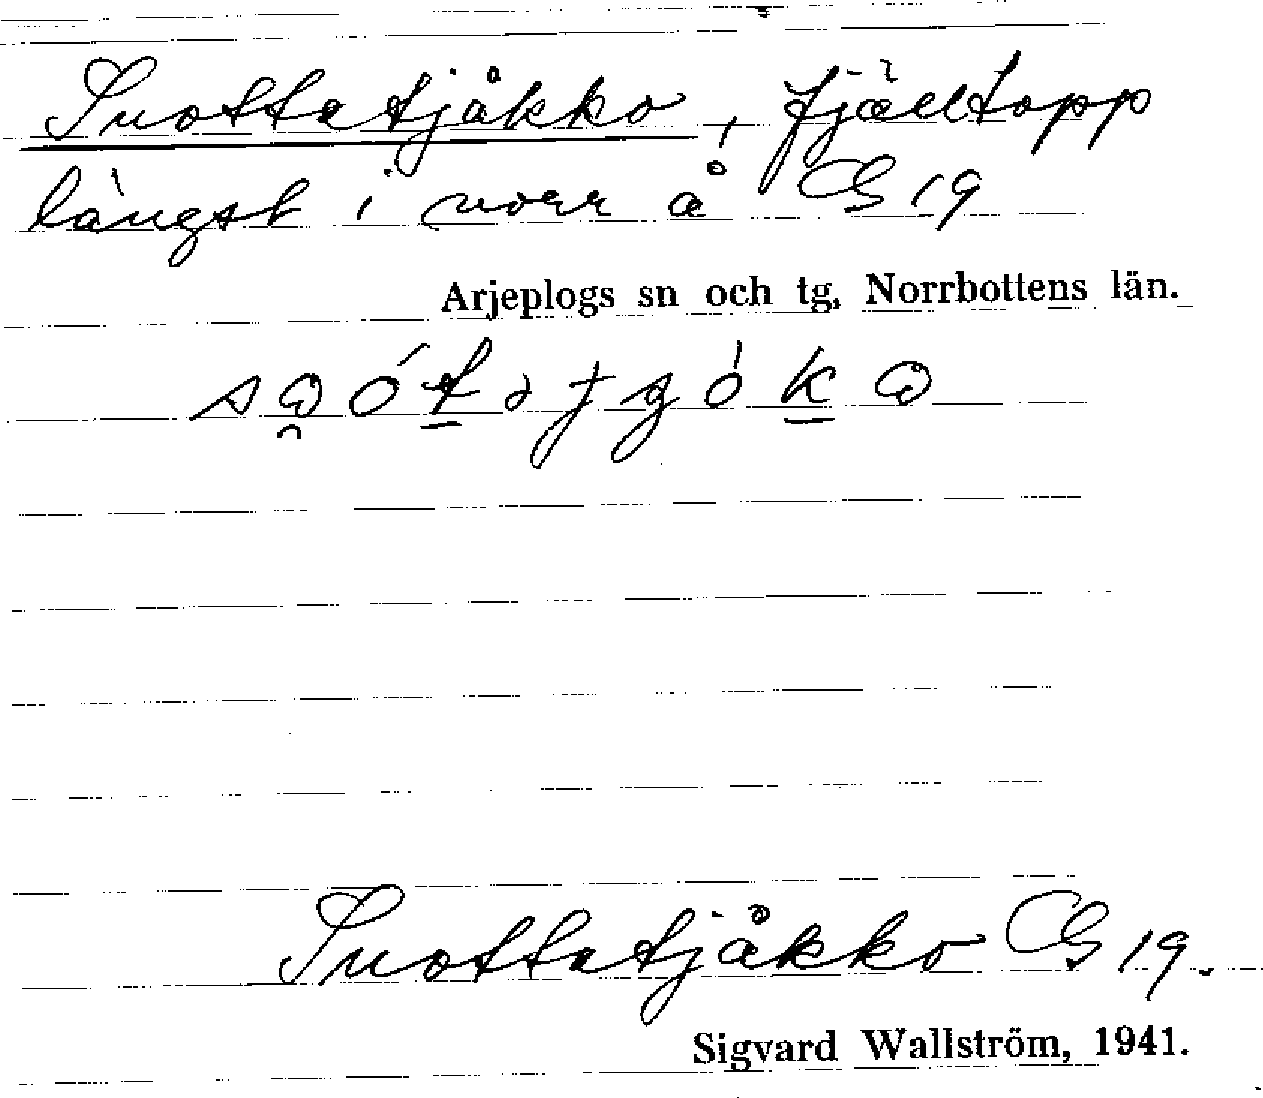 Suottatjåkko, fjälltopp
längst i norr å G 19
Arjeplogs sn och tg, Norrbottens län.
Suottatjåkko G 19.
Sigvard Wallström, 1941.